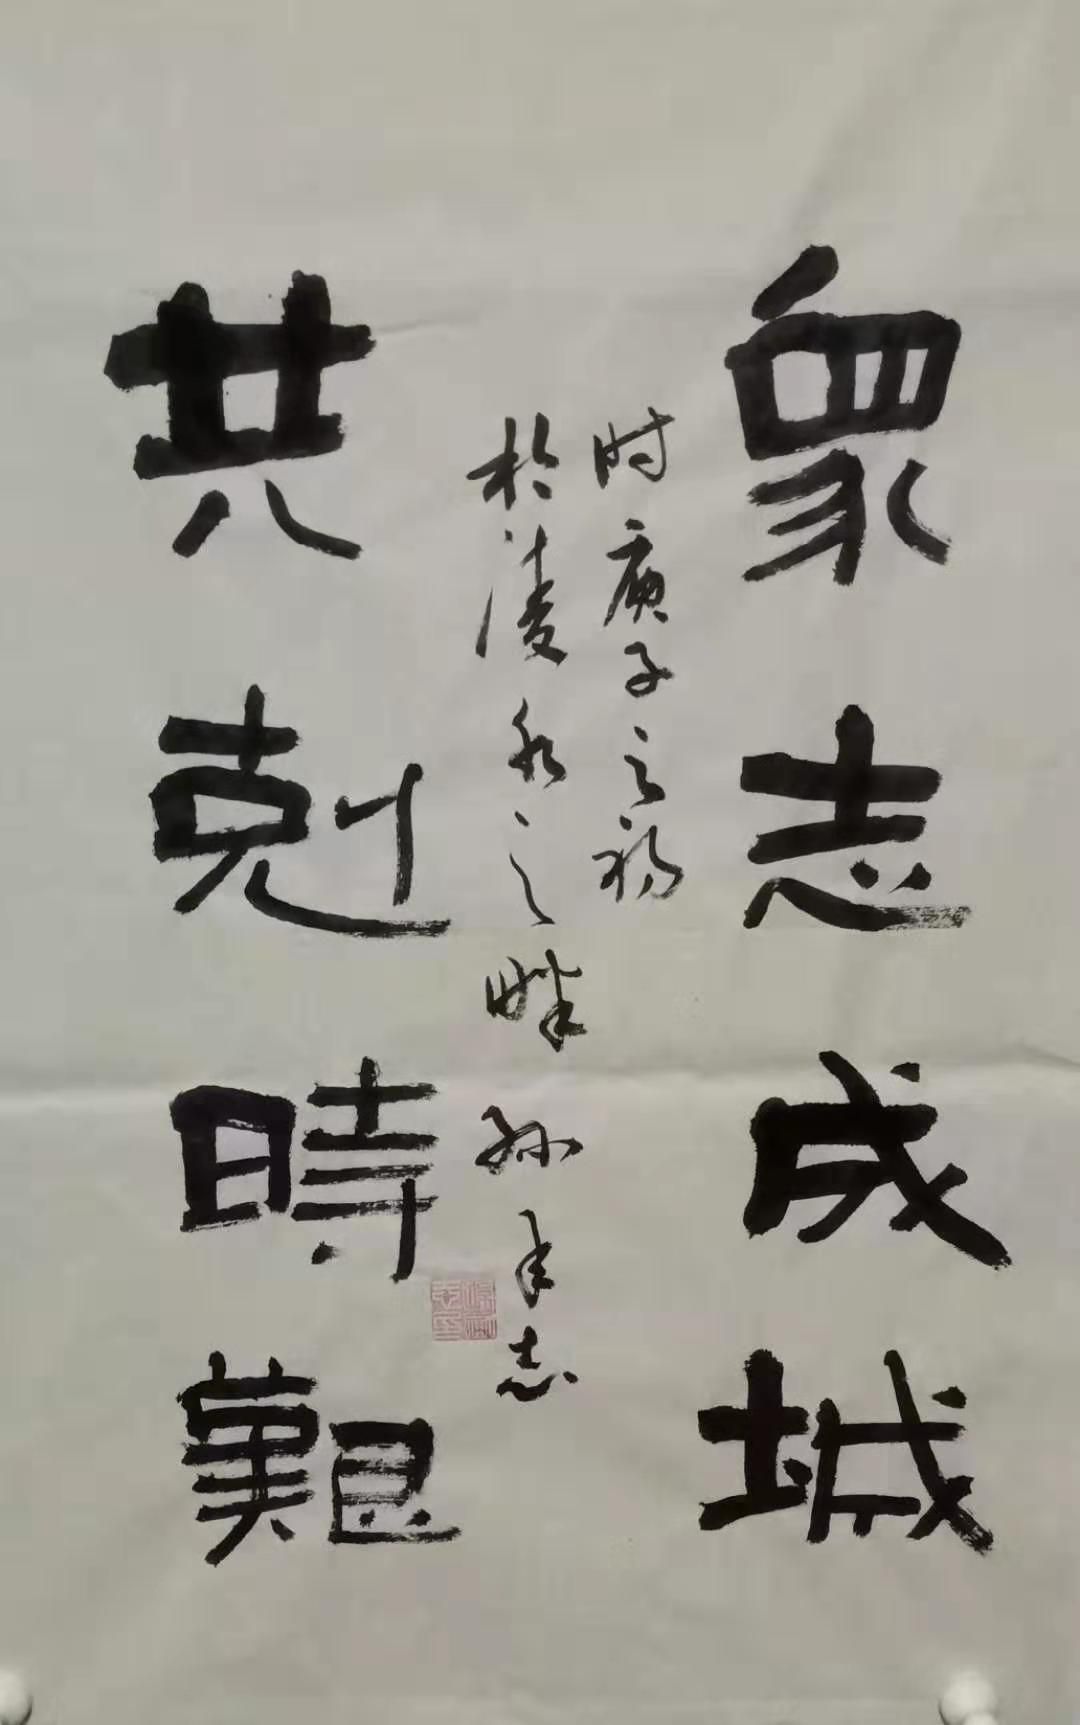 眾志成城
共剋時艱
时庚子之初
於凌水之畔 孙丰志